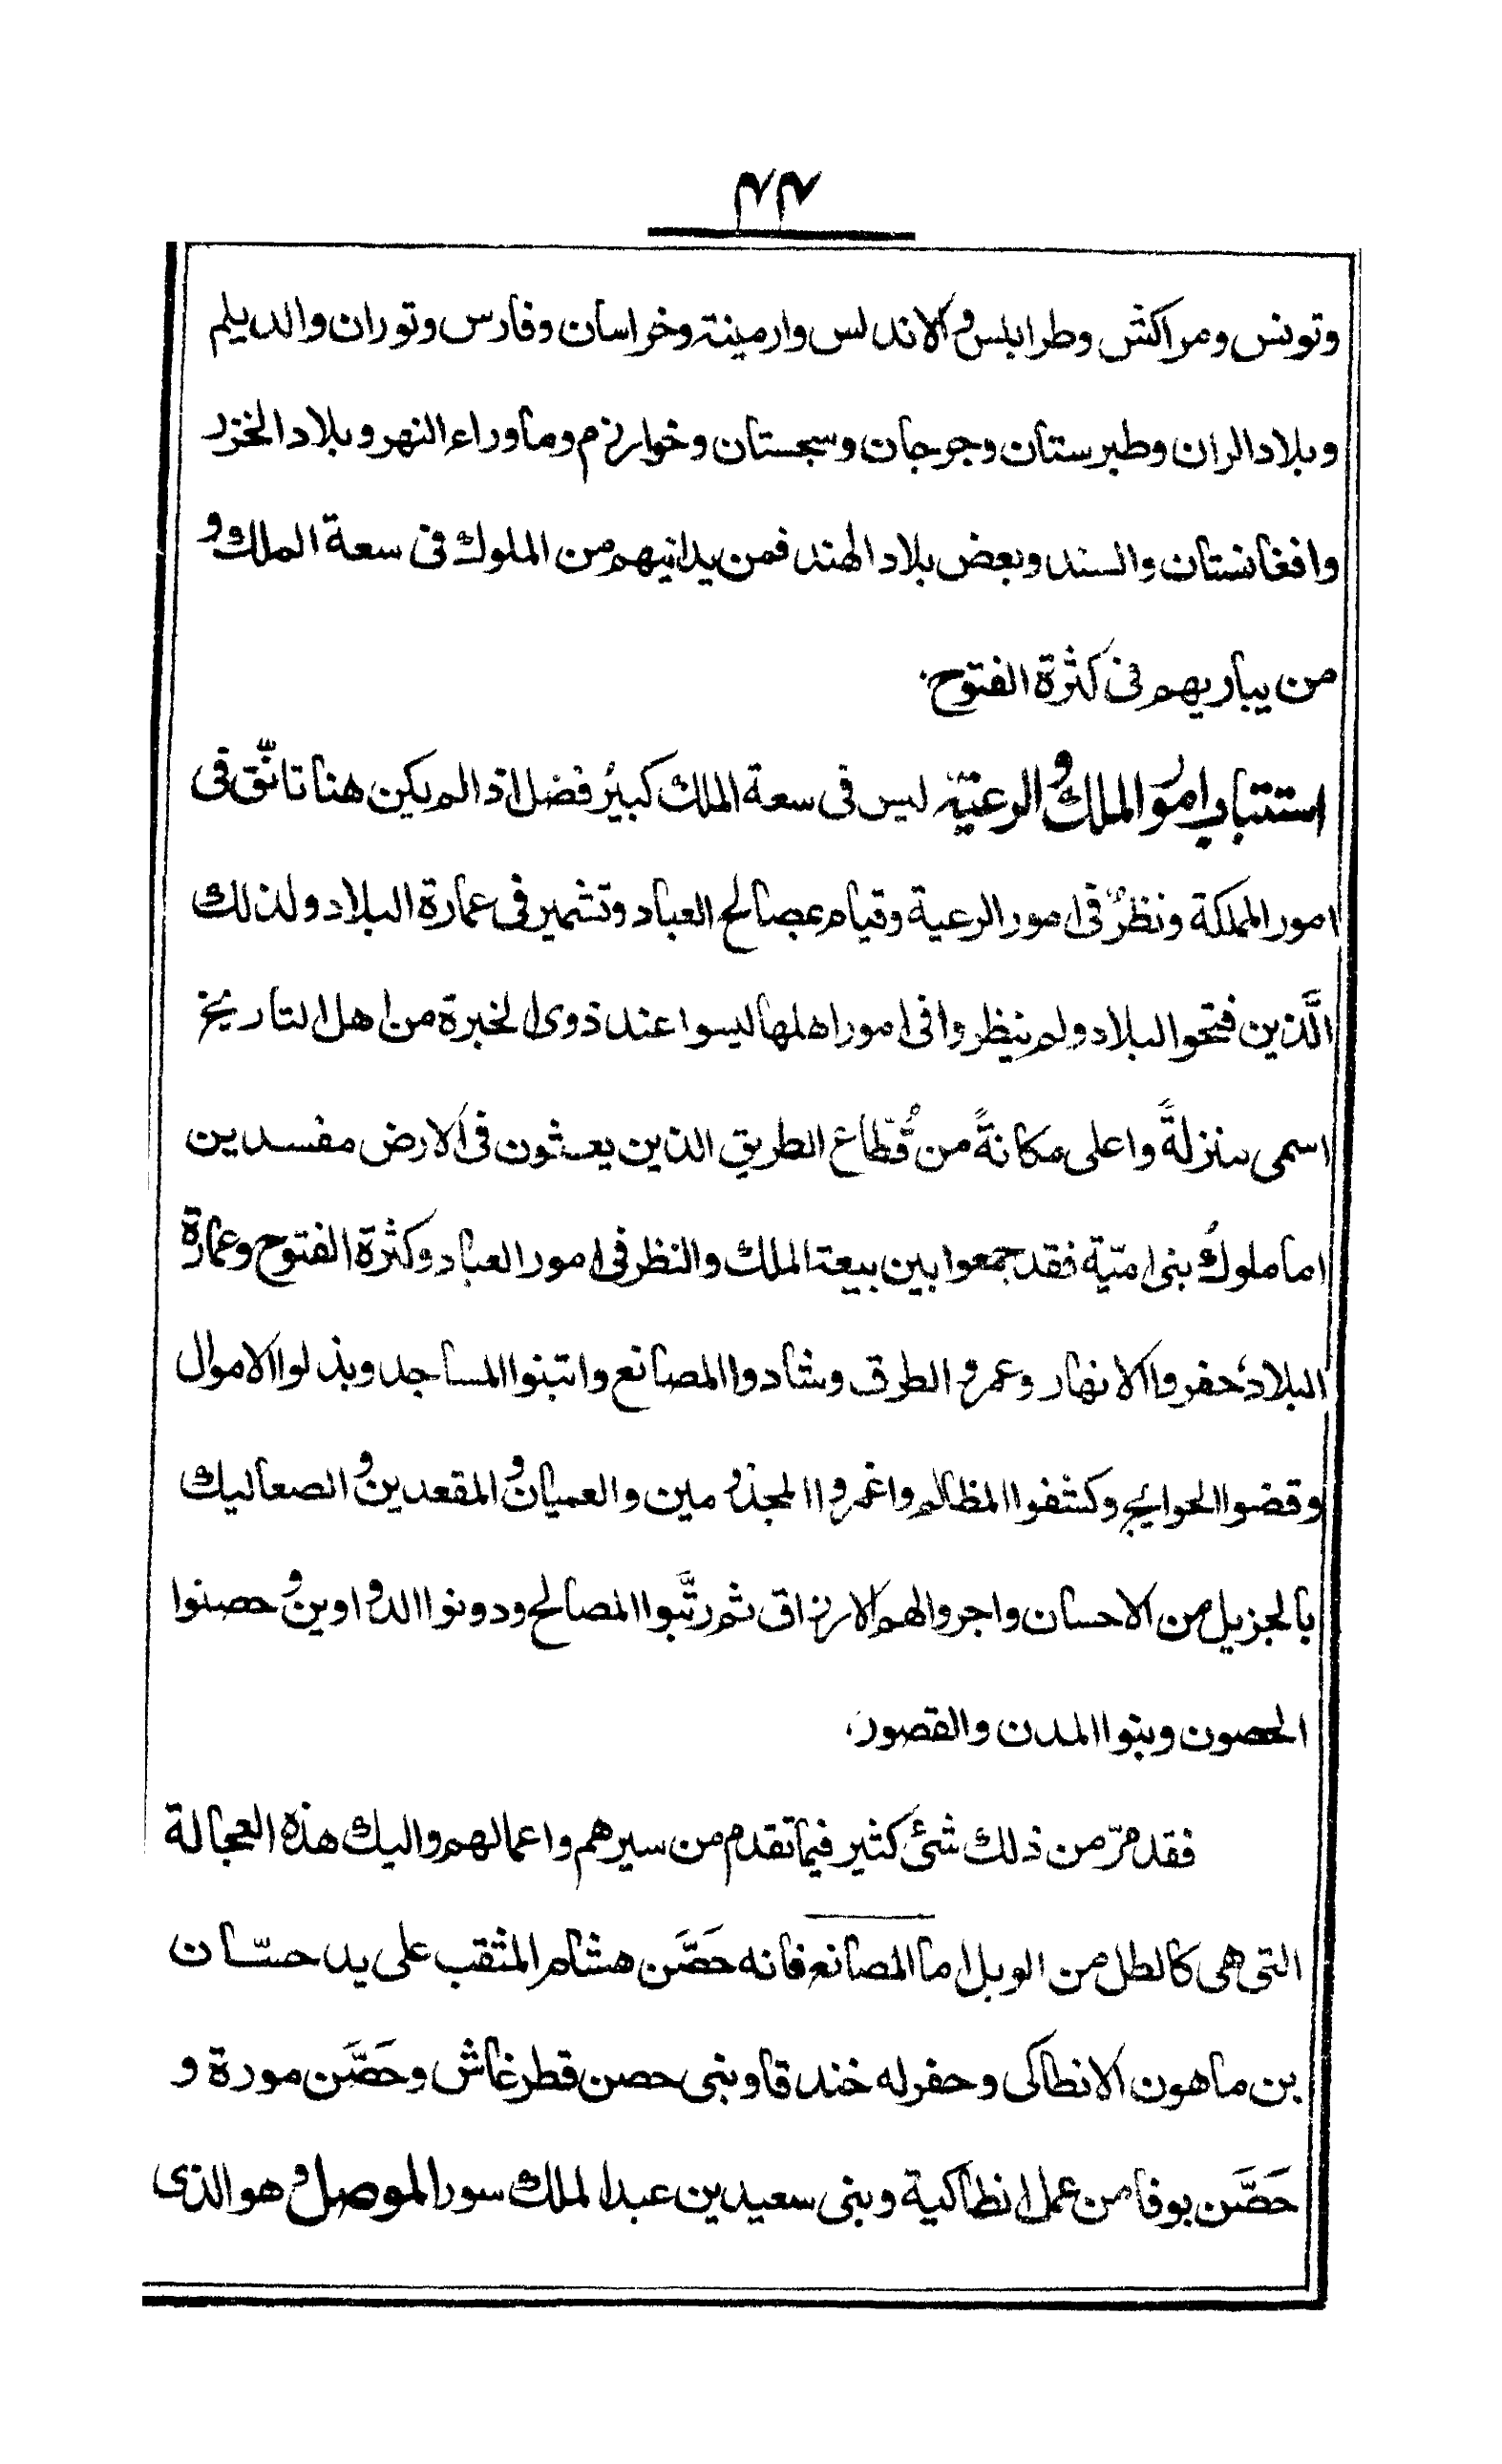 ٤٤
وتونس ومراكش وطرابلس والاندلس وارمينة وخراسان وفارس وتوران والديلم
وبلاد الران وطبرستان وجرجان وسجستان وخوارزم وماوراء النهر وبلاد الخزر
وافغانستان والسند وبعض بلاد الهند فمن يدانيهم من الملوك فى سعة الملك و
من يباريهم فى كثرة الفتوح.
استتباب امور الملك والرعيّة ليس فى سعة الملك كبيرُ فضل اذا لم يكن هنا تانّق فى
امور المملكة ونظرٌ فى امور الرعية وقيام بمصالح العباد وتشمير فى عمارة البلاد ولذلك
الَّذين فتحوا البلاد ولم ينظروا فى امور اهلها ليسوا عند ذوى الخبرة من اهل التاريخ
اسمى منزلةً واعلى مكانةً من قُطّاع الطريق الذين يعثون فى الارض مفسدين
اما ملوكُ بنى اميّة فقد جمعوا بين بيعة الملك والنظر فى امور العباد وكثرة الفتوح وعمارة
البلاد، حفروا الانهار وعمروا الطرق وشادوا المصانع وابتنوا المساجد وبذلوا الاموال
وقضوا الحوايج وكشفوا المظالم واغمروا المجذومين والعميان والمقعدين والصعاليك
بالجزيل من الاحسان واجروا لهم الارزاق ثم رتَّبوا المصالح ودونوا الدواوين وحصنوا
الحصون وبنوا المدن والقصور،
فقد مرّ من ذلك شئ كثير فيما تقدم من سيرهم واعمالهم واليك هذه العجالة
التى هى كالطل من الوبل اما المصانع فانه حَصَّن هشام المثقب على يد حسّان
بن ماهون الانطاكى وحفر له خندقا وبنى حصن قطرغاش وحَصَّن مورة و
حَصَّن بوقا من عمل انطاكية وبنى سعيد بن عبد الملك سور الموصل وهو الذى